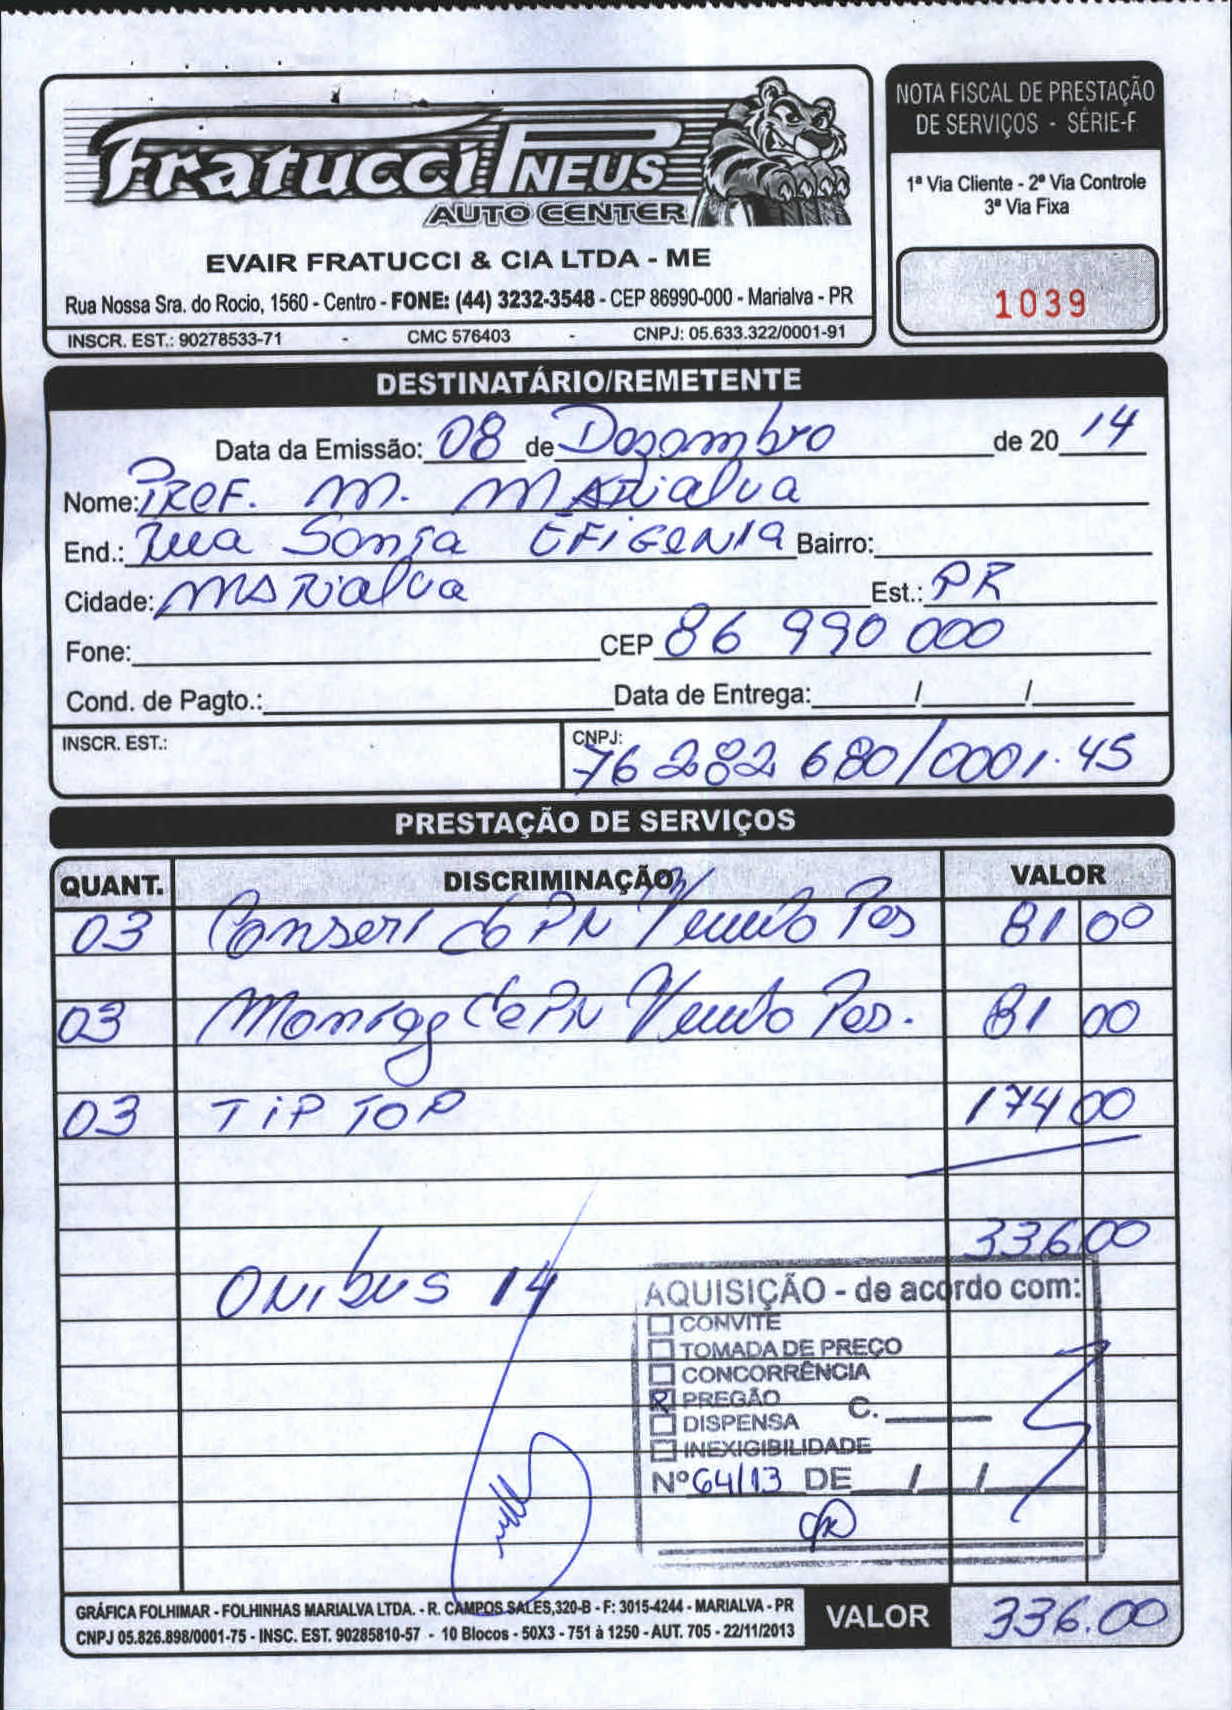 Fratucci PNEUS
AUTO CENTER
EVAIR FRATUCCI & CIA LTDA - ME
Rua Nossa Sra. do Rocio, 1560 - Centro - FONE: (44) 3232-3548 - CEP 86990-000 - Marialva - PR
INSCR. EST.: 90278533-71 - CMC 576403 - CNPJ: 05.633.322/0001-91
NOTA FISCAL DE PRESTAÇÃO
DE SERVIÇOS - SÉRIE-F
1ª Via Cliente - 2ª Via Controle
3ª Via Fixa
1039
DESTINATÁRIO/REMETENTE
Data da Emissão: 08 de Dezembro de 20 14
Nome: PREF. M. MARialva
End.: Rua Santa EFiGENIA Bairro:
Cidade: MARialva Est.: PR
Fone: CEP 86 990 000
Cond. de Pagto.: Data de Entrega: / /
INSCR. EST.: CNPJ: 76 282 680/0001.45
PRESTAÇÃO DE SERVIÇOS
QUANT. DISCRIMINAÇÃO VALOR
03 de PN 81 00
03 de PN 81 00
03 TiP TOP 174 00
336 00
ONibus 14
AQUISIÇÃO - de acordo com:
CONVITE
TOMADA DE PREÇO
CONCORRÊNCIA
PREGÃO
DISPENSA C.
INEXIGIBILIDADE
Nº 64/13 DE / /
GRÁFICA FOLHIMAR - FOLHINHAS MARIALVA LTDA. - R. CAMPOS SALES,320-B - F: 3015-4244 - MARIALVA - PR
CNPJ 05.826.898/0001-75 - INSC. EST. 90285810-57 - 10 Blocos - 50X3 - 751 à 1250 - AUT. 705 - 22/11/2013
VALOR 336.00